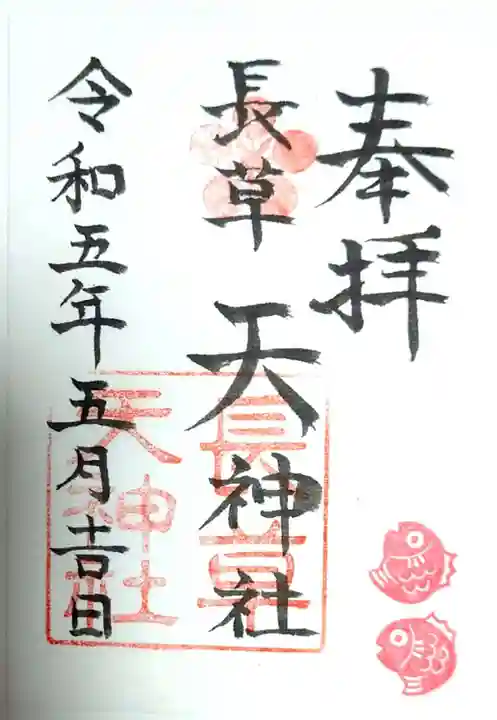 奉拝
長草天神社
令和五年五月吉日
長草
天神社